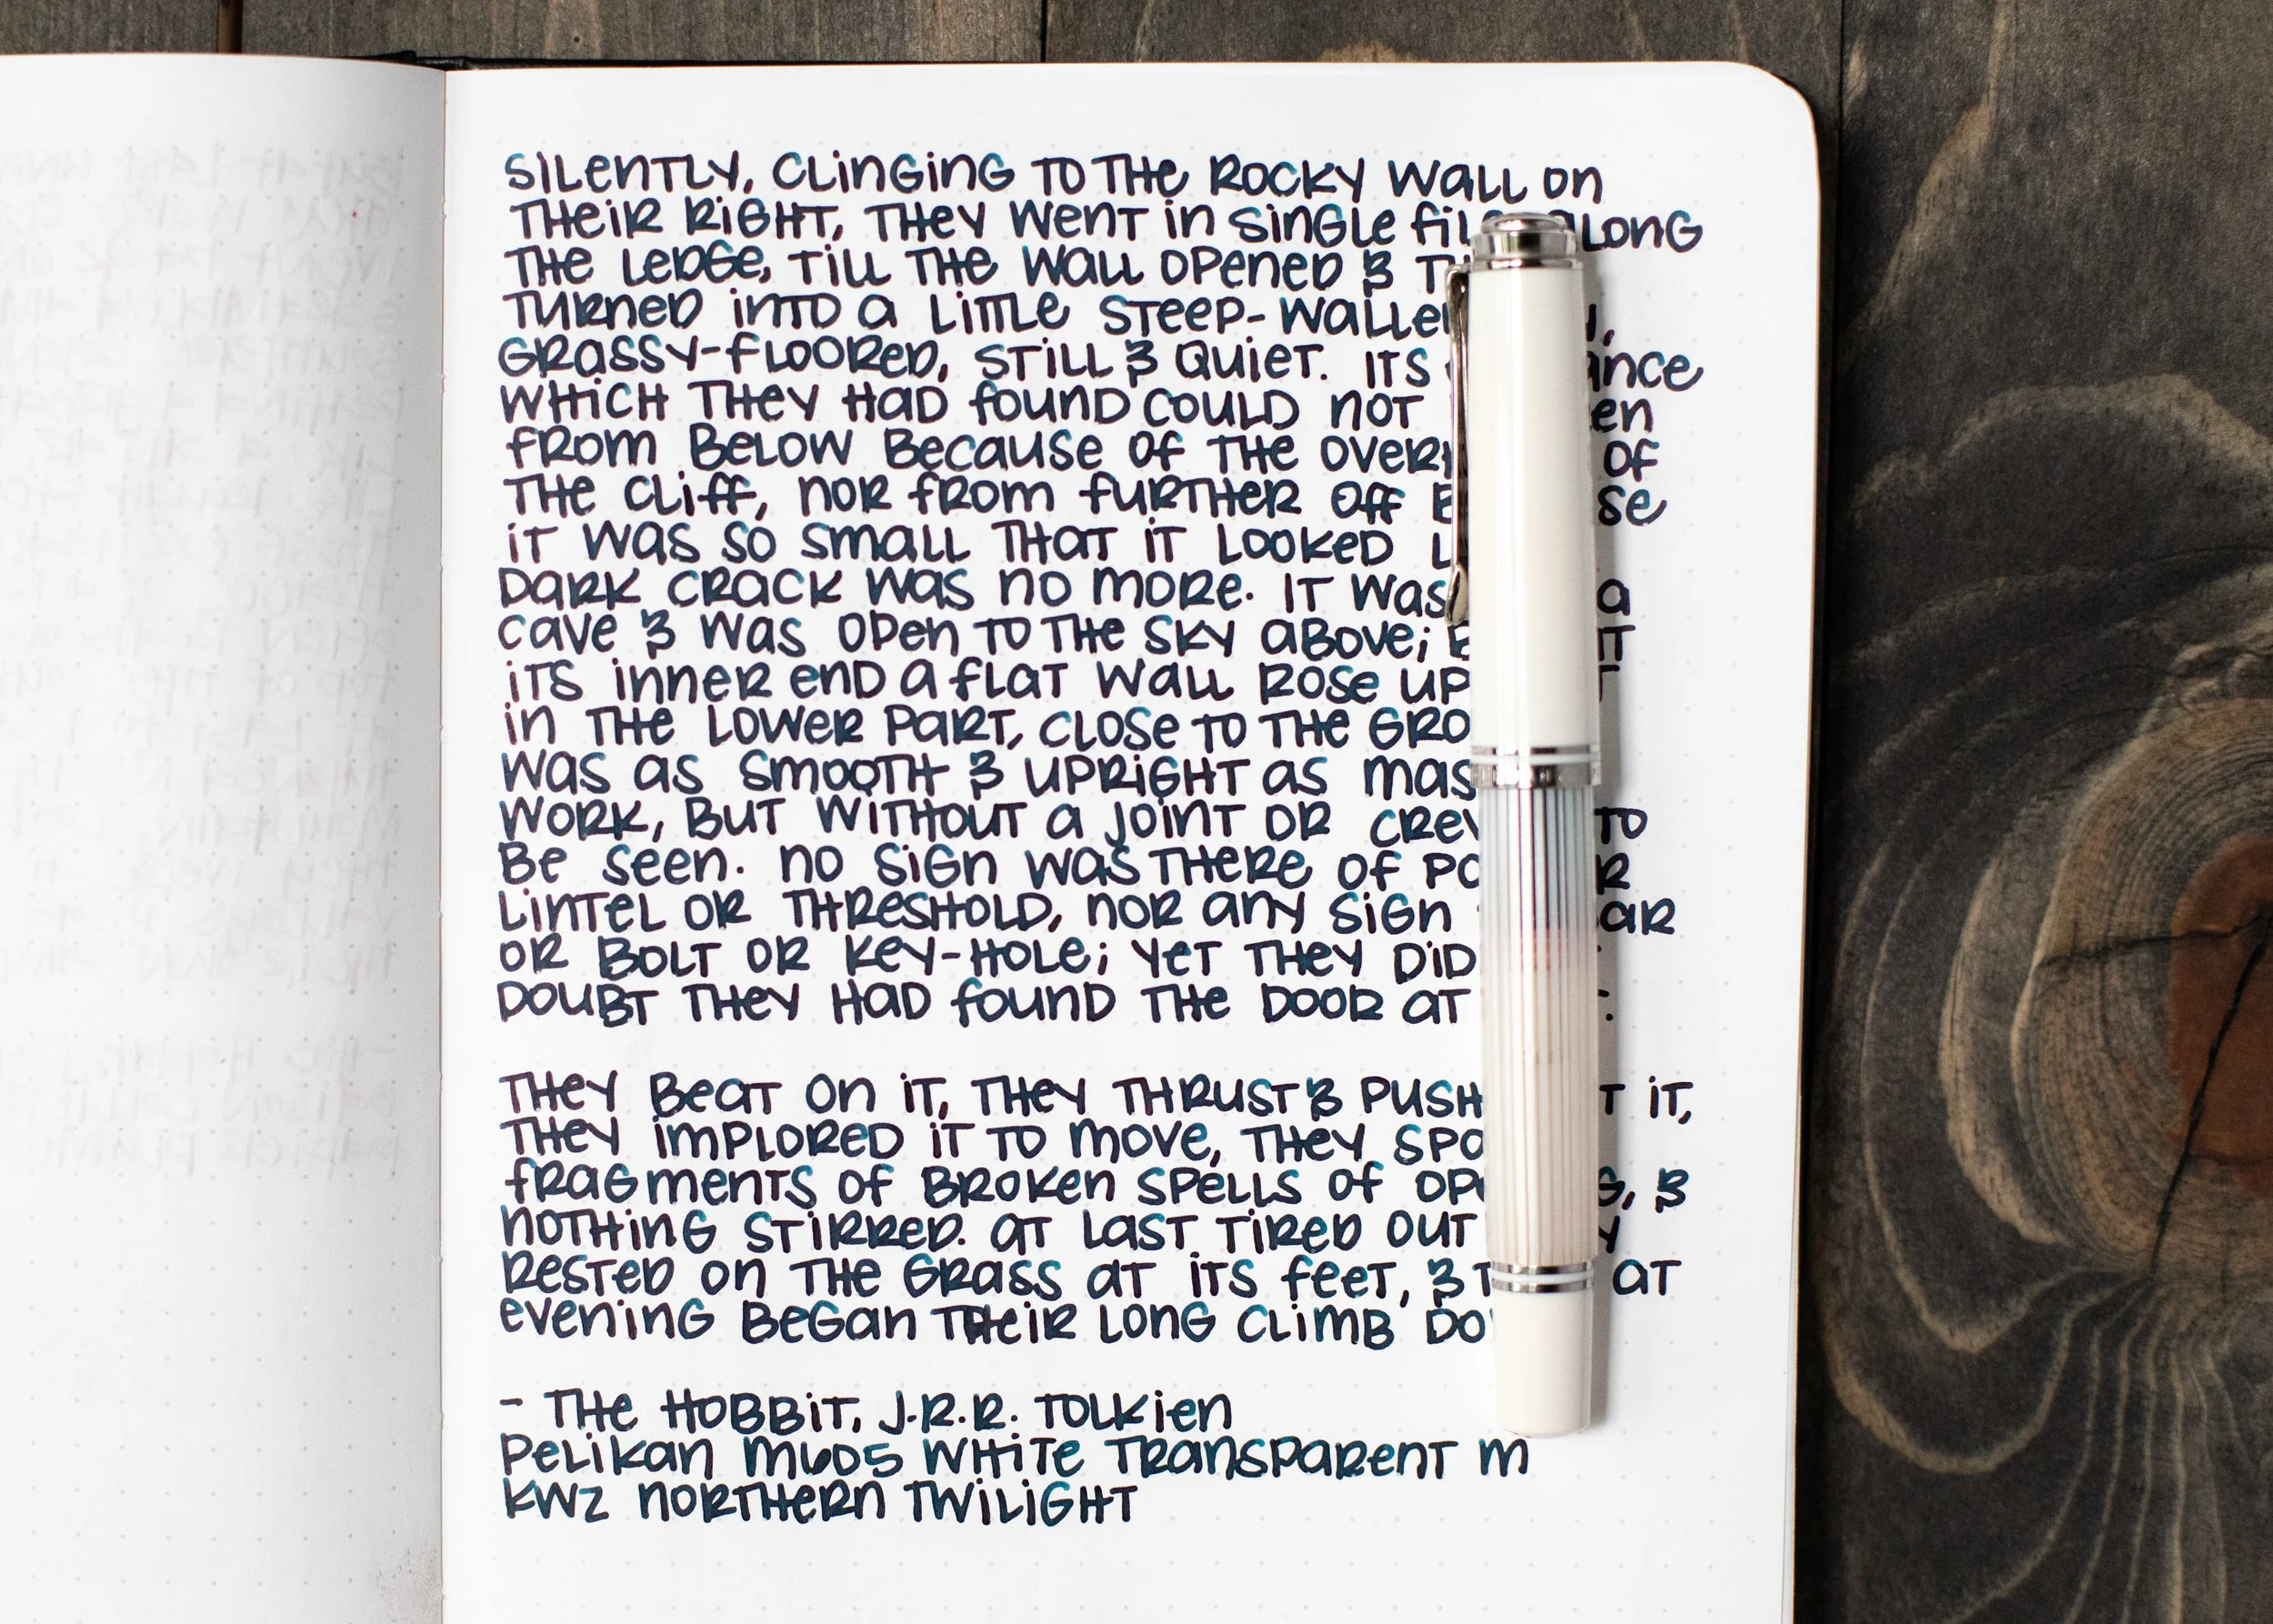 SILENTLY, CLINGING TO THE ROCKY WALL ON
THEIR RIGHT, THEY WENT IN SINGLE FILE ALONG
THE LEDGE, TILL THE WALL OPENED &
TURNED INTO A LITTLE STEEP-WALLED
GRASSY-FLOORED, STILL & QUIET. ITS
WHICH THEY HAD FOUND COULD NOT
FROM BELOW BECAUSE OF THE OF
THE CLIFF, NOR FROM FURTHER OFF
IT WAS SO SMALL THAT IT LOOKED
DARK CRACK WAS NO MORE. IT WAS A
CAVE & WAS OPEN TO THE SKY ABOVE; AT
ITS INNER END A FLAT WALL ROSE UP
IN THE LOWER PART, CLOSE TO THE
WAS AS SMOOTH & UPRIGHT AS
WORK, BUT WITHOUT A JOINT OR TO
BE SEEN. NO SIGN WAS THERE OF
LINTEL OR THRESHOLD, NOR ANY SIGN BAR
OR BOLT OR KEY-HOLE; YET THEY DID
DOUBT THEY HAD FOUND THE DOOR AT
THEY BEAT ON IT, THEY THRUST & IT,
THEY IMPLORED IT TO MOVE, THEY
FRAGMENTS OF BROKEN SPELLS OF &
NOTHING STIRRED. AT LAST TIRED OUT
RESTED ON THE GRASS AT ITS FEET, & AT
EVENING BEGAN THEIR LONG CLIMB
- THE HOBBIT, J.R.R. TOLKIEN
PELIKAN M605 WHITE TRANSPARENT M
KWZ NORTHERN TWILIGHT